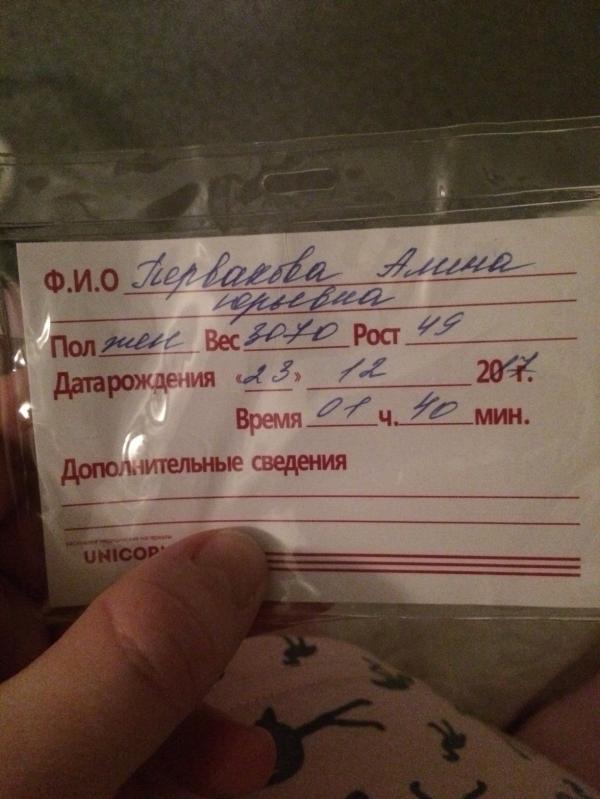 Ф.И.О Первакова Алина
юрьевна
Пол жен Вес 3070 Рост 49
Дата рождения «23» 12 2017г.
Время 01 ч. 40 мин.
Дополнительные сведения